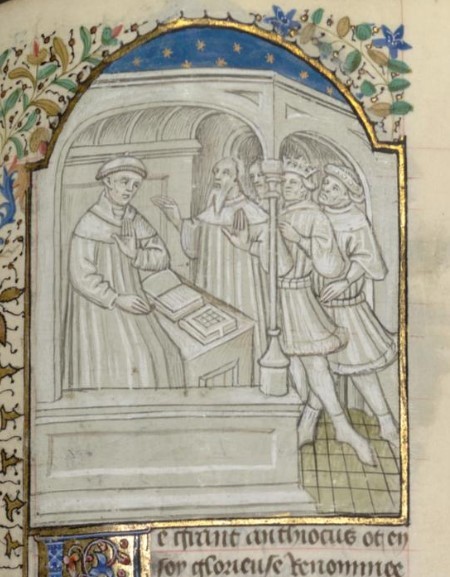 e grant anthiocus ot en
soy glorieuse Renommee